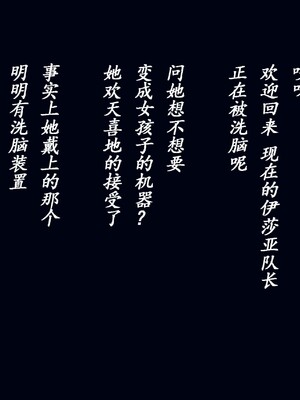 欢迎回来 现在的伊莎亚队长
正在被洗脑呢
问她想不想要
变成女孩子的机器？
她欢天喜地的接受了
事实上她戴上的那个
明明有洗脑装置